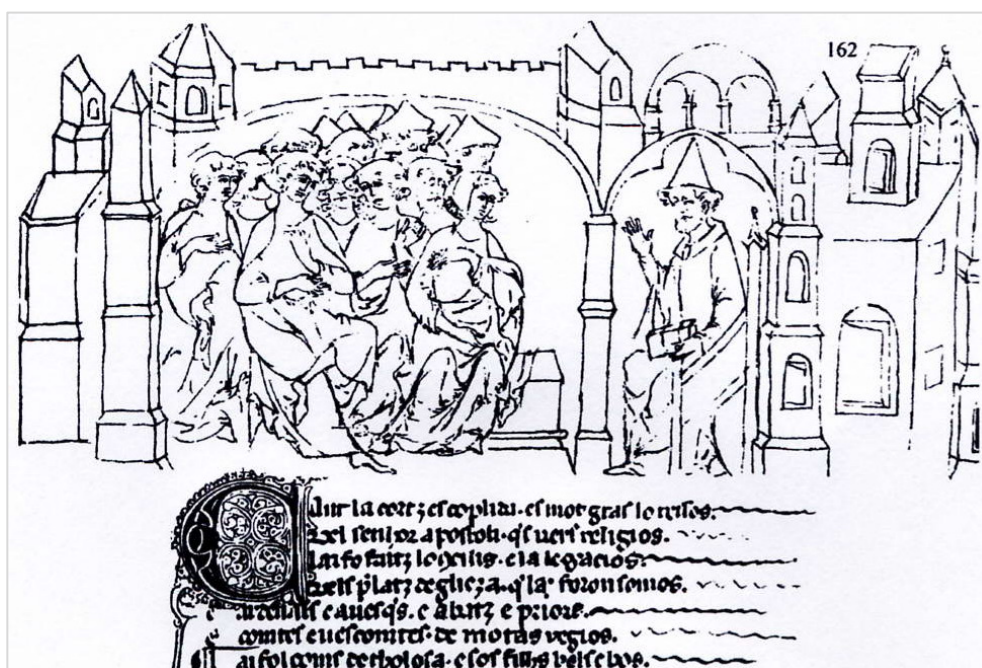 162
la cortz es coplida · es mot gras lo ressos ·
Del senhor apostoli · qs vers religios ·
Lai fo faitz lo e la legacios ·
Dels platz de glieza · q la foron somos ·
e avesqs · e abatz e priors ·
comtes e vescomtes · de motas regios ·
coms de tholosa · e sos filhs bels e bos ·